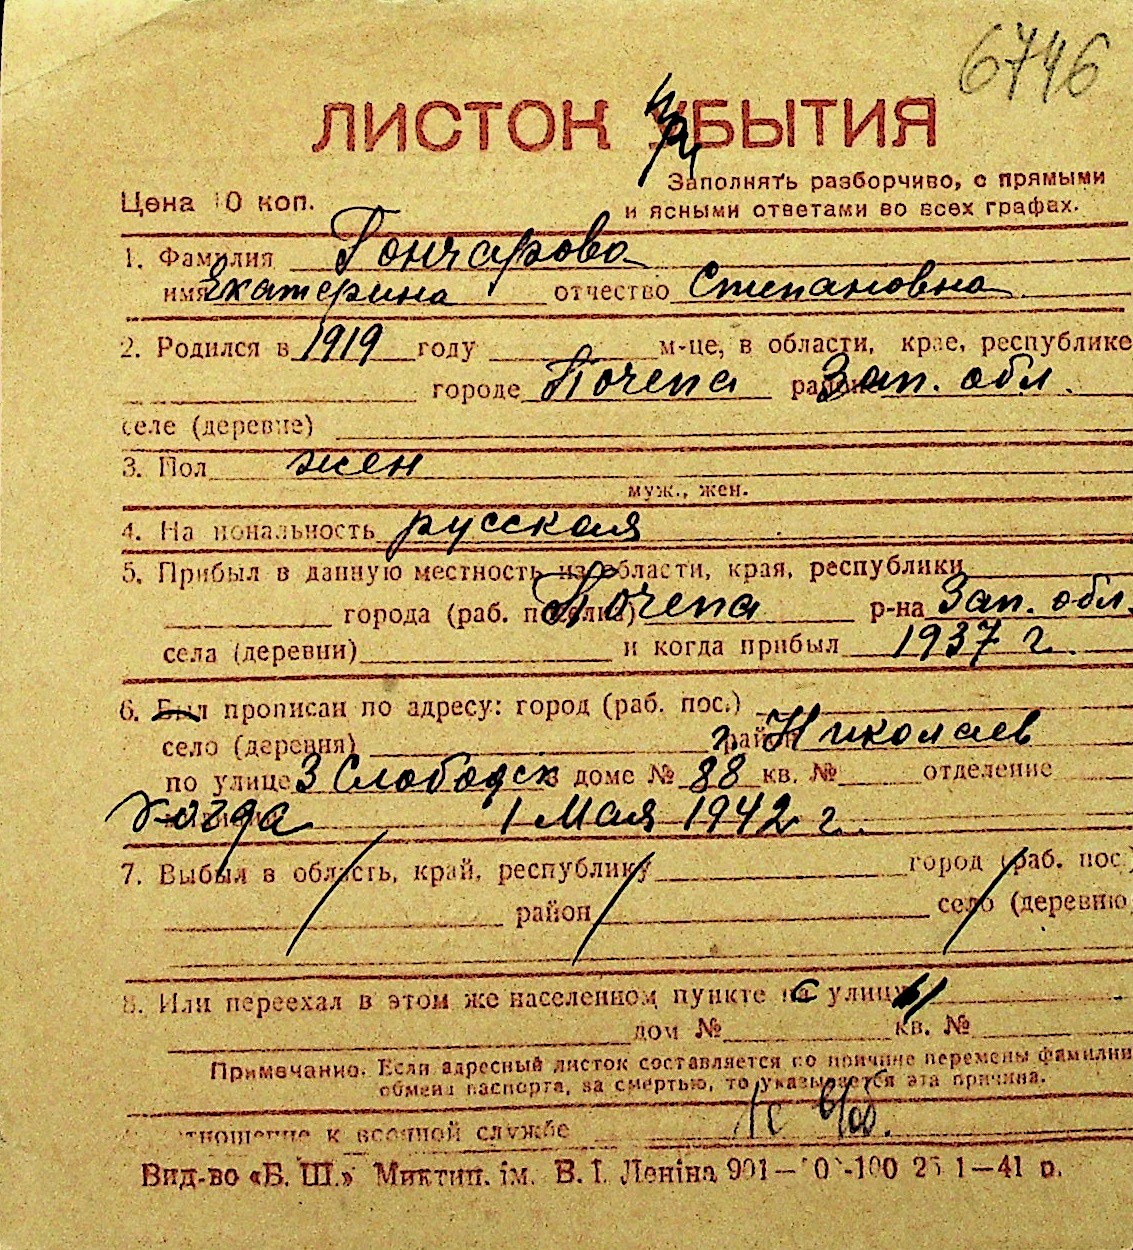 6746
ЛИСТОК УБЫТИЯ
Цена 10 коп.
Заполнять разборчиво, с прямыми
и ясными ответами во всех графах.
1. Фамилия Гончарова
имя Екатерина отчество Степановна
2. Родился в 1919 году м-це, в области, крае, республике
городе Почепа районе Зап. обл.
селе (деревне)
3. Пол жен
муж., жен.
4. Национальность русская
5. Прибыл в данную местность из области, края, республики
города (раб. поселка) Почепа р-на Зап. обл.
села (деревни) и когда прибыл 1937 г.
6. Был прописан по адресу: город (раб. пос.)
село (деревня) район г. Николаев
по улице 3 Слободск в доме № 88 кв. № отделение
когда 1 Мая 1942 г.
7. Выбыл в область, край, республику город (раб. пос.)
район село (деревню
8. Или переехал в этом же населенном пункте с улицы
дом № кв. №
Примечание. Если адресный листок составляется по причине перемены фамилии
обмена паспорта, за смертью, то указывается эта причина.
отношение к военной службе
Вид-во «Б. Ш.» Миктип. ім. В. І. Леніна 901— -100 1—41 р.